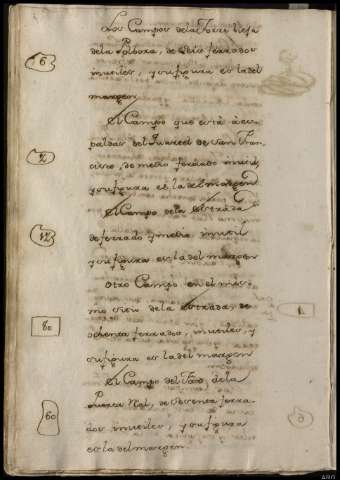 Los Campos dela Torre Vieja
dela Polbora, de seis ferrados
6
inutiles, y su figura es la del
margen
El Campo que està à es
paldas del Quartel de San Fran
cisco, de medio ferrado inutil,
y su figura es la del margen
El Campo dela Estrada
de ferrado y medio inutil
y su figura es la del margen
Otro Campo en el mis
mo sitio dela Estrada, de
80
ochenta ferrados, inutiles, y
su figura es la del margen
El Campo del de la
Puerta Real, de sesenta ferra
60
dos inutiles, y su figura
es la del margen